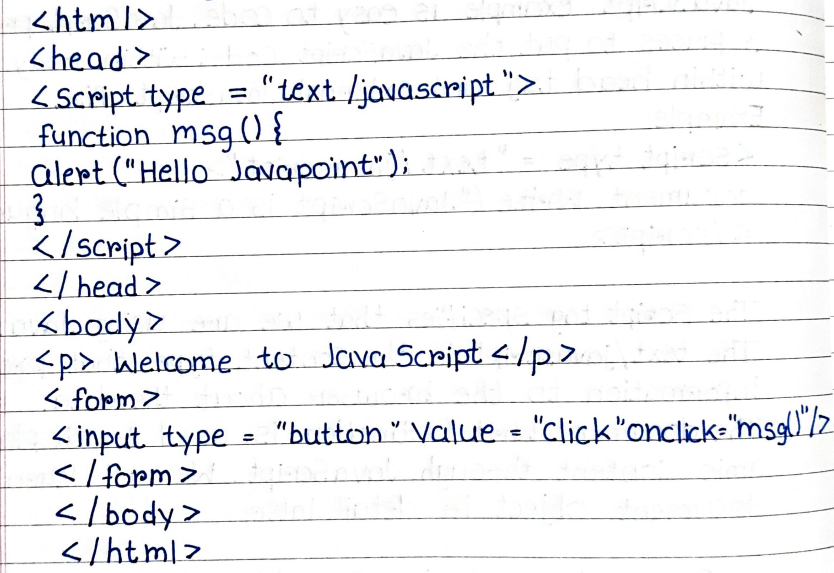 <html>
<head>
<script type = "text /javascript">
function msg() {
alert ("Hello Javapoint");
}
</script>
</head>
<body>
<p> Welcome to Java Script </p>
<form>
<input type = "button" Value = "click" onclick="msg()"/>
</form>
</body>
</html>